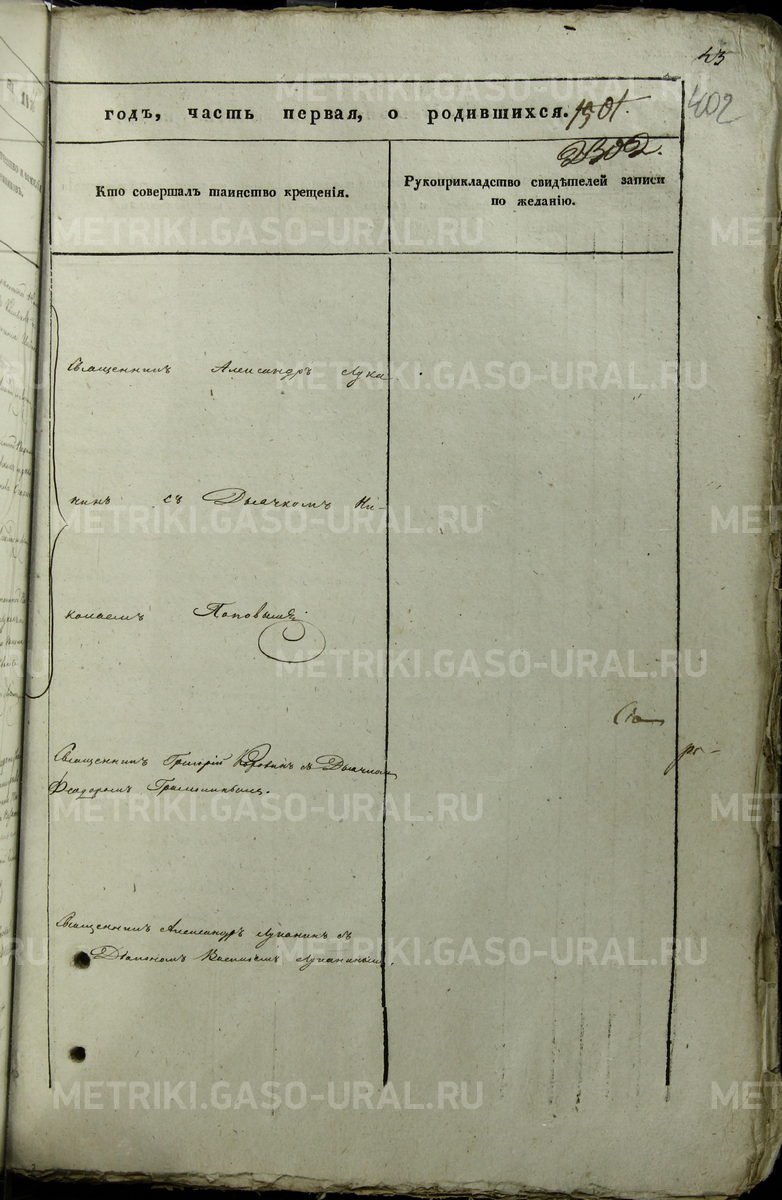 43
402
годъ, часть первая, о родившихся.
Кто совершалъ таинство крещенія.
Рукоприкладство свидѣтелей записи
по желанію.
Священникъ Александръ Лука
нинъ съ Дьячкомъ Ни-
колаемъ Поповымъ
Священникъ Григорій Коровинъ съ Дьячкомъ
Феодоромъ
Священникъ Александръ Луканинъ съ
Дьякономъ Василіемъ Луканинымъ.
METRIKI.GASO-URAL.RU